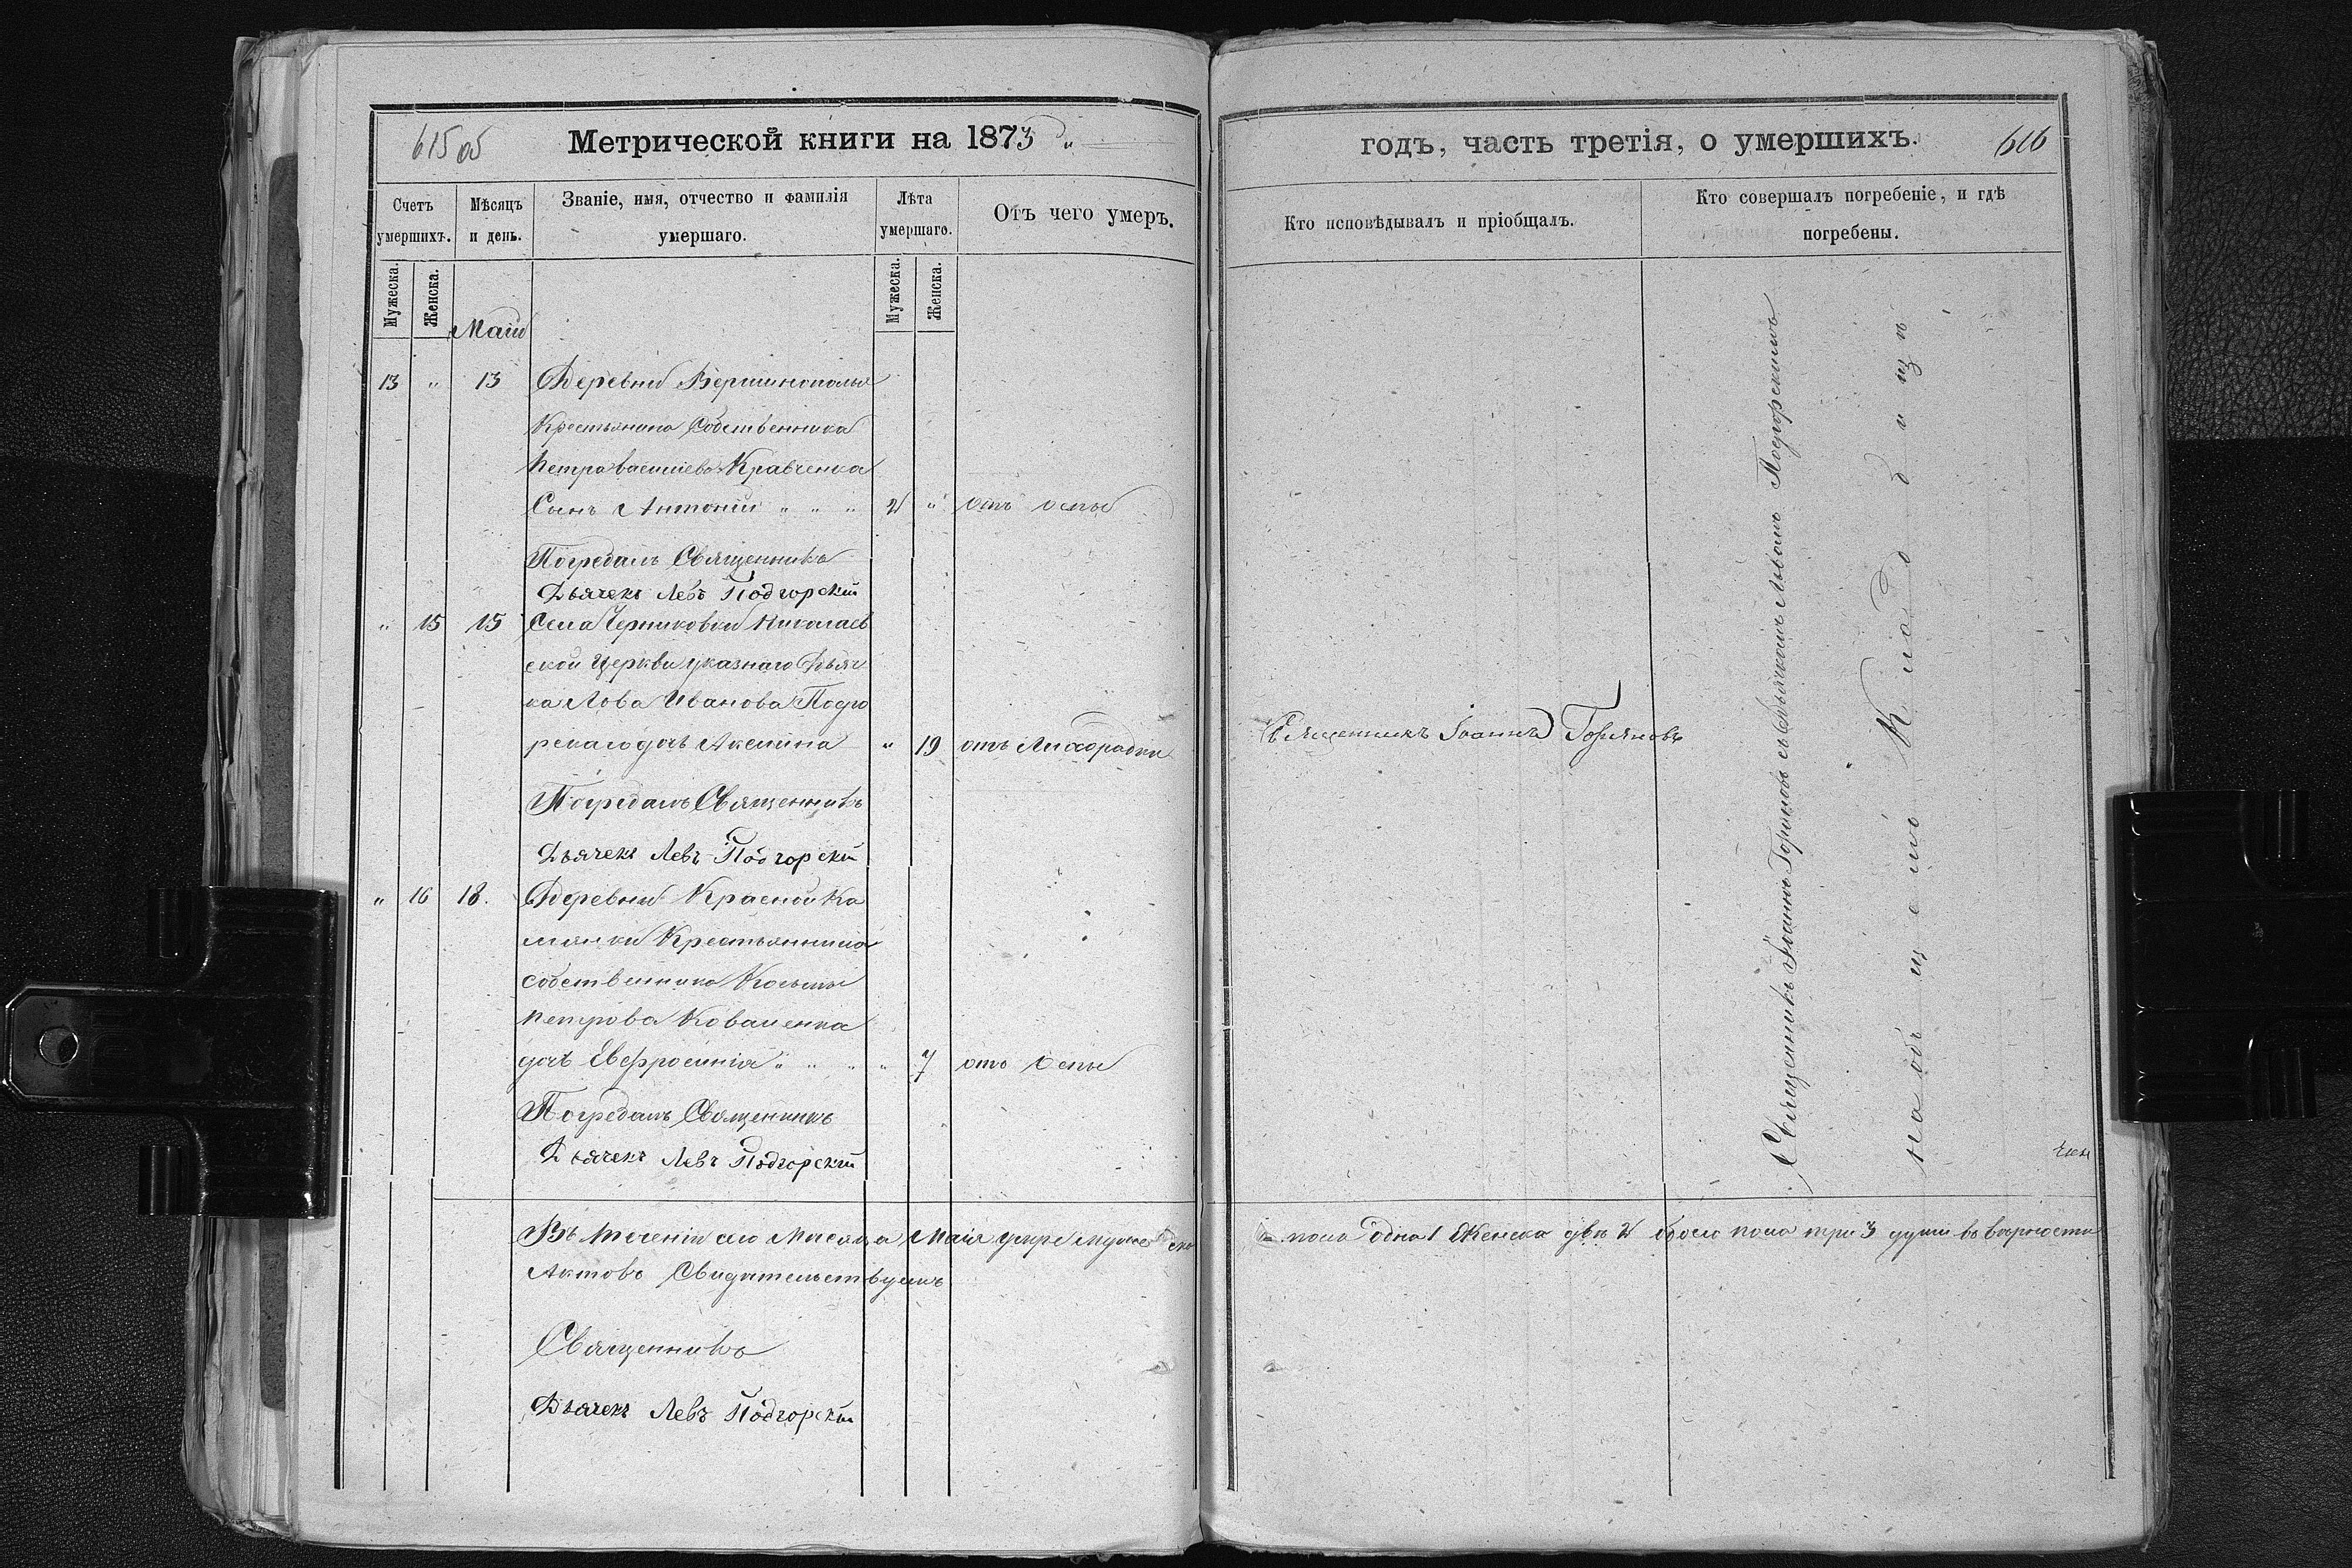 615 об
Метрической книги на 1873
Счетъ умершихъ.
Мѣсяцъ и день.
Званіе, имя, отчество и фамилія умершаго.
Лѣта умершаго.
Отъ чего умеръ.
Мужеска.
Женска.
Мужеска.
Женска.
Маій
13 " 13 Деревни
Крестьянина Собственника
Петра Васильева Кравченка
Сынъ Антоній " " " 2 " отъ оспы
Погребалъ Священникъ
Дьячекъ Левъ Подгорскій
" 15 15 Села Черниковки Николаев
ской Церкви указнаго Дьяч
ка Лва Иванова Подго
рскаго дочь Акелина " 19 отъ Лихорадки
Погребалъ Священникъ
Дьячекъ Левъ Подгорскій
" 16 18. Деревни Красной Ка
мянки Крестьянина
собственника Космы
Петрова Коваленка
дочь Евфросинія " " " " 7 отъ Оспы
Погребалъ Священникъ
Дьячекъ Левъ Подгорскій
Въ теченіи сего Мисяца Маія умре мужеска
Актовъ Свидительствуемъ
Священникъ
Дьячекъ Левъ Подгорскій
годъ, часть третія, о умершихъ.
616
Кто исповѣдывалъ и пріобщалъ.
Кто совершалъ погребеніе, и гдѣ
погребены.
Священникъ Іоаннъ Горяновъ
Священникъ Іоаннъ Горяновъ съ Дьячкомъ Львомъ Подгорскимъ
на общемъ Кладбищѣ
пола одна 1 Женска двѣ 2 обоего пола три 3 души въ вѣрности